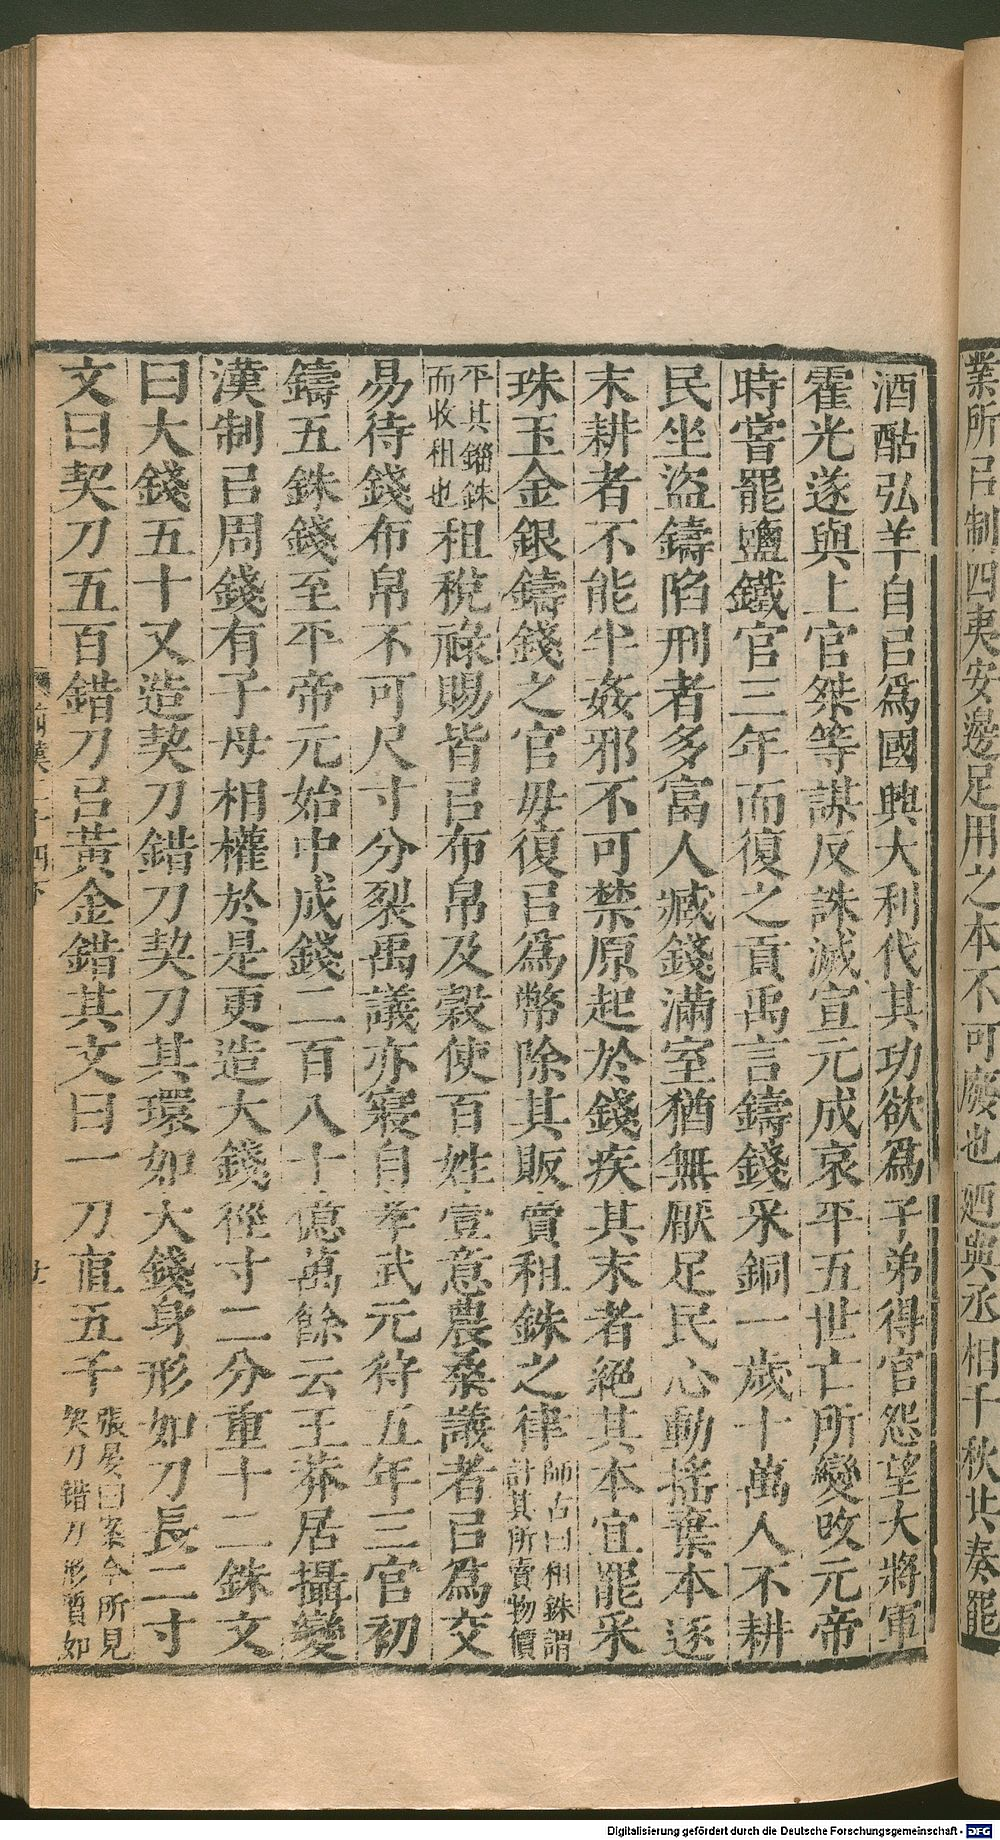 業所㠯制四夷安邊足用之本不可廢也廼與丞相千秋共奏罷
酒酤弘羊自㠯爲國興大利伐其功欲爲子弟得官怨望大將軍
霍光遂與上官桀等謀反誅滅宣元成哀平五世亡所變攺元帝
時嘗罷鹽鐵官三年而復之貢禹言鑄錢采銅一歲十萬人不耕
民坐盜鑄陷刑者多富人臧錢滿室猶無厭足民心動搖棄本逐
末耕者不能半姦邪不可禁原起於錢疾其末者絕其本宜罷采
珠玉金銀鑄錢之官毋復㠯爲幣除其販賣租銖之律師古曰租銖謂
計其所賣物價
平其錙銖
而收租也租稅祿賜皆㠯布帛及穀使百姓壹意農桑議者㠯爲交
易待錢布帛不可尺寸分裂禹議亦寢自孝武元狩五年三官初
鑄五銖錢至平帝元始中成錢二百八十億萬餘云王莽居攝變
漢制㠯周錢有子母相權於是更造大錢徑寸二分重十二銖文
曰大錢五十又造契刀錯刀契刀其環如大錢身形如刀長二寸
文曰契刀五百錯刀㠯黃金錯其文曰一刀直五千張晏曰案今所見
契刀錯刀形質如
Digitalisierung gefördert durch die Deutsche Forschungsgemeinschaft - DFG